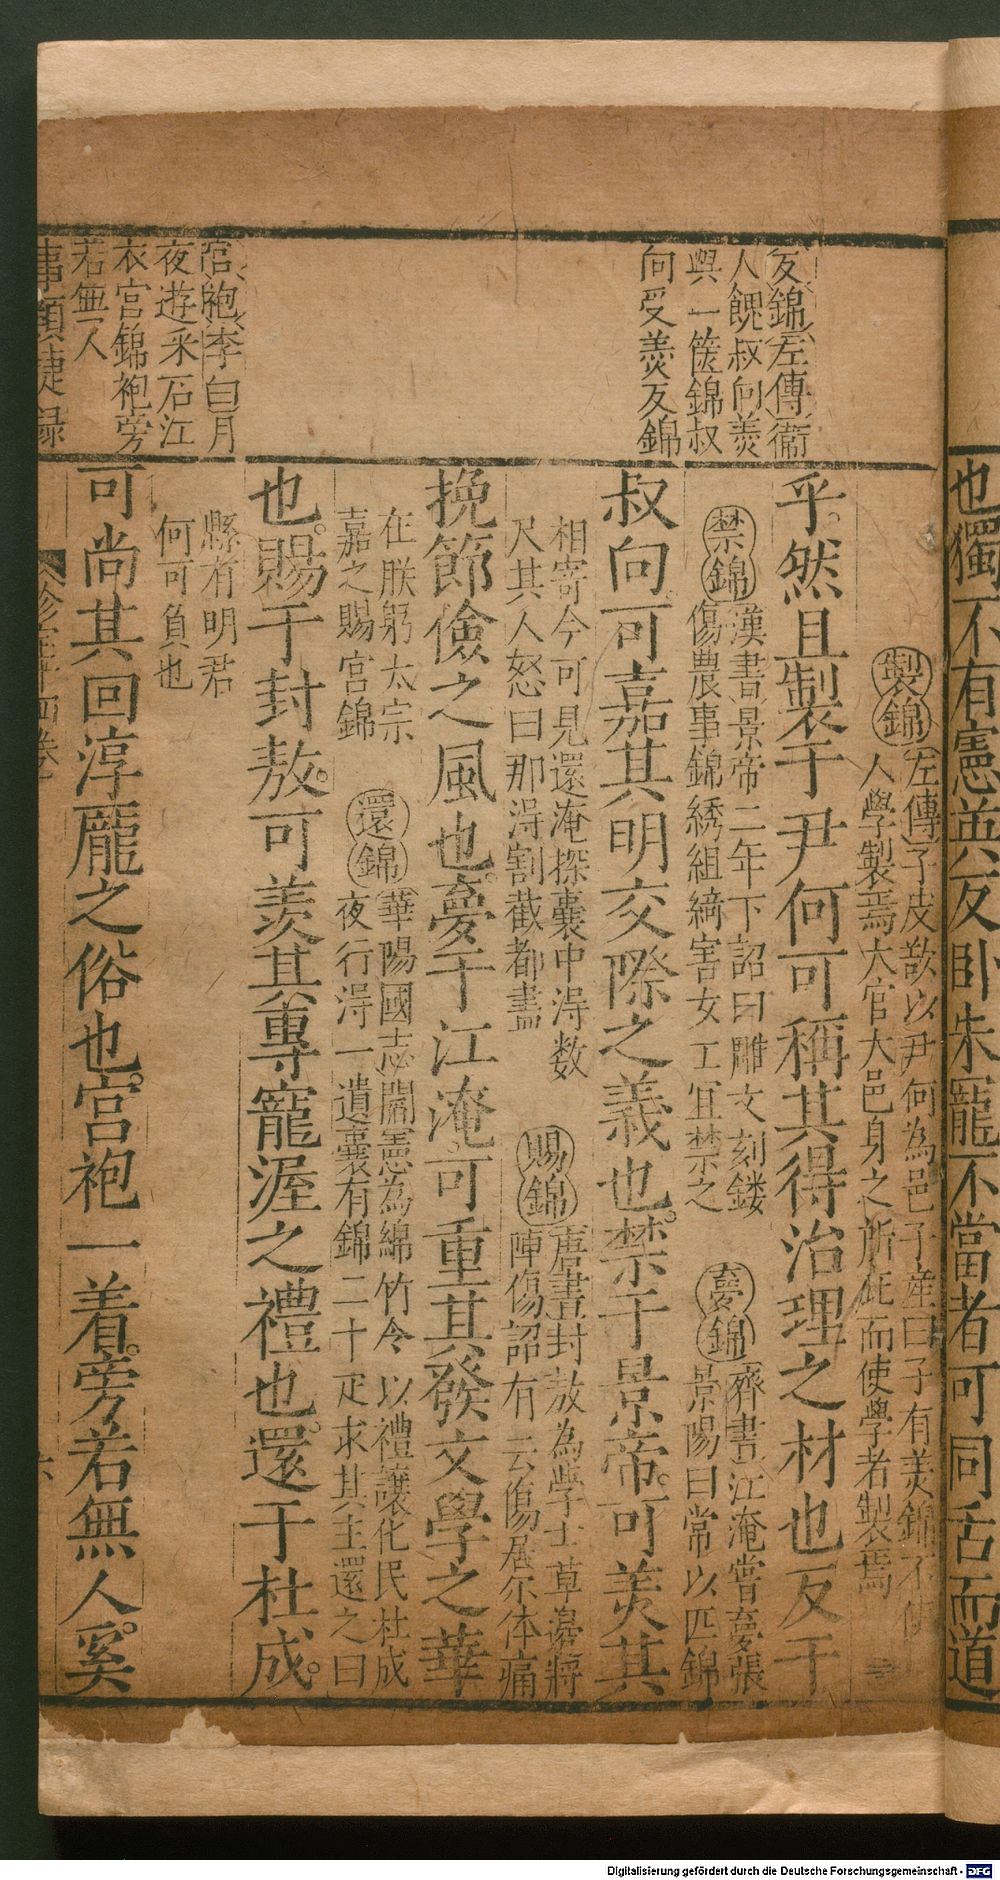 也獨不有憲英反卧朱寵不當者可同舌而道
反錦左傳衞
人餽叔向羡
與一篋錦叔
向受羨反錦
宮袍李白月
夜遊采石江
衣宮錦袍旁
若無人
事類捷録
製錦左傳子皮欲以尹何為邑子産曰子有美錦不使
人學製焉大官大邑身之所庇而使學者製焉
乎然且製于尹何可稱其得治理之材也反于
禁錦漢書景帝二年下詔曰雕文刻鏤
傷農事錦綉組綺害女工宜禁之
夢錦齊書江淹嘗夢張
景陽曰常以匹錦
叔向可嘉其明交際之義也禁于景帝可羡其
相寄今可見還淹探囊中得数
尺其人怒曰那得割截都盡
賜錦唐書封敖為學士草邊將
陣傷詔有云傷居尓体痛
挽節儉之風也夢于江淹可重其發文學之華
在朕躬太宗
嘉之賜宮錦
還錦華陽國志閻憲為綿竹令以禮讓化民杜成
夜行得一遺囊有錦二十疋求其主還之曰
也賜于封敖可羨其專寵渥之禮也還于杜成
縣有明君
何可負也
可尚其回淳龎之俗也宮袍一着旁若無人奚
六
Digitalisierung gefördert durch die Deutsche Forschungsgemeinschaft - DFG